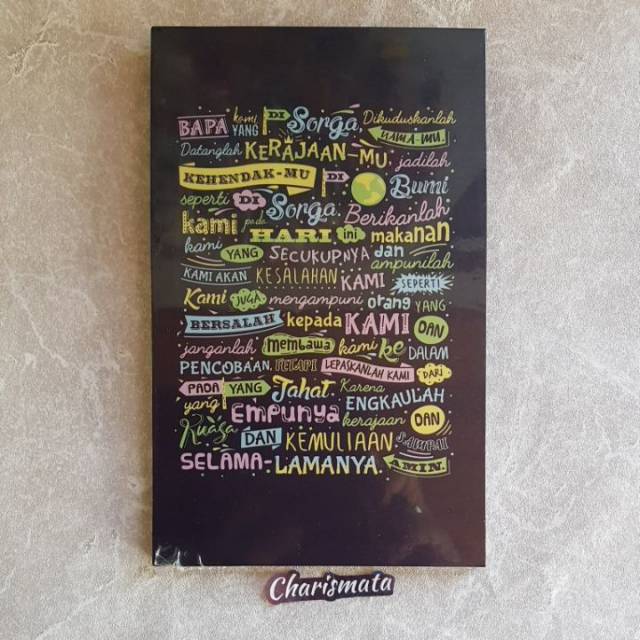 BAPA kami YANG DI Sorga, Dikuduskanlah NAMA-MU,
Datanglah KERAJAAN-MU, jadilah
KEHENDAK-MU DI Bumi
seperti DI Sorga. Berikanlah
kami pada HARI ini makanan
kami YANG SECUKUPNYA dan ampunilah
KAMI AKAN KESALAHAN KAMI SEPERTI
Kami JUGA mengampuni orang YANG
BERSALAH kepada KAMI DAN
janganlah membawa kami ke DALAM
PENCOBAAN, TETAPI LEPASKANLAH KAMI DARI
PADA YANG Jahat. Karena ENGKAULAH
yang EMPUNYA kerajaan DAN
Kuasa DAN KEMULIAAN SAMPAI
SELAMA-LAMANYA. AMIN.
Charismata